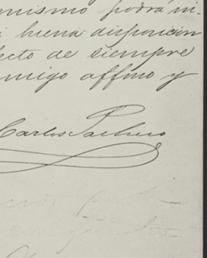 anismo podrá ni-
a buena disposicion
fecto de siempre
amigo affmo y
Carlos Pacheco